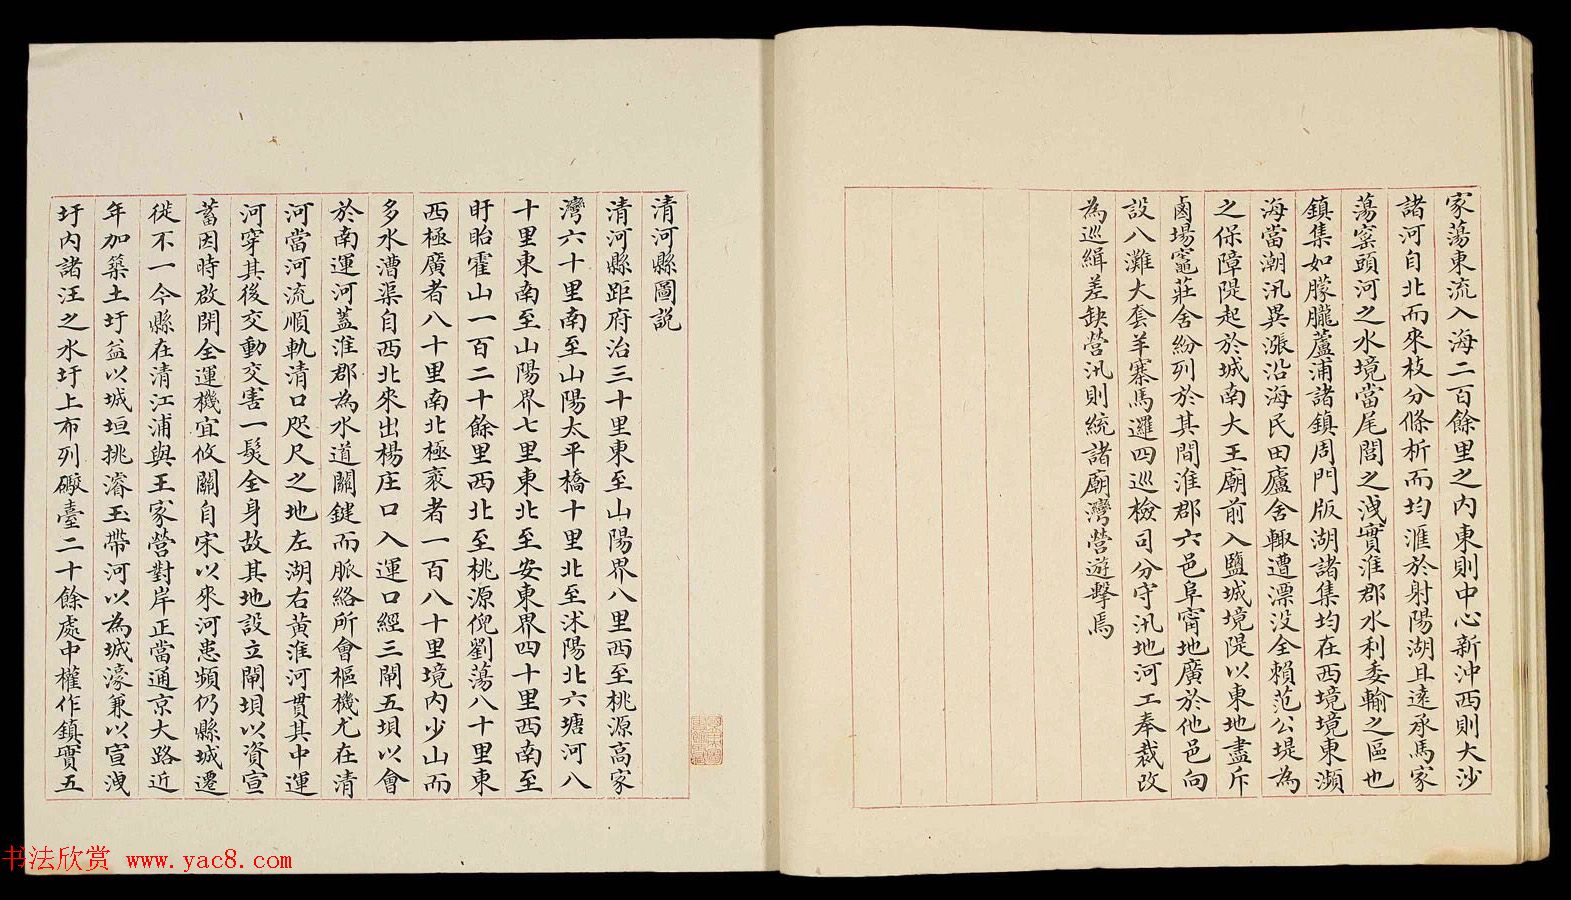 家蕩東流入海二百餘里之內東則中心新沖西則大沙
諸河自北而來枝分條析而均滙於射陽湖且遠承馬家
蕩窰頭河之水境當尾閭之洩實淮郡水利委輸之區也
鎮集如朦朧蘆浦諸鎮周門版湖諸集均在西境境東瀕
海當潮汛異漲沿海民田廬舍輙遭漂没全賴范公堤為
之保障隄起於城南大王廟前入鹽城境隄以東地盡斥
鹵場竈莊舍紛列於其間淮郡六邑阜甯地廣於他邑向
設八灘大套羊寨馬邏四巡檢司分守汛地河工奉裁改
為巡緝差缺營汛則統諸廟灣營遊擊焉
清河縣圖説
清河縣距府治三十里東至山陽界八里西至桃源高家
灣六十里南至山陽太平橋十里北至沭陽北六塘河八
十里東南至山陽界七里東北至安東界四十里西南至
盱眙霍山一百二十餘里西北至桃源倪劉蕩八十里東
西極廣者八十里南北極袤者一百八十里境內少山而
多水漕渠自西北來出楊庄口入運口經三閘五垻以會
於南運河蓋淮郡為水道關鍵而脈絡所會樞機尤在清
河當河流順軌清口咫尺之地左湖右黃淮河貫其中運
河穿其後交動交害一髮全身故其地設立閘垻以資宣
蓄因時啟閉全運機宜攸關自宋以來河患頻仍縣城遷
徙不一今縣在清江浦與王家營對岸正當通京大路近
年加築土圩益以城垣挑濬玉帶河以為城濠兼以宣洩
圩內諸汪之水圩上布列礮臺二十餘處中權作鎮實五
书法欣赏 www.yac8.com